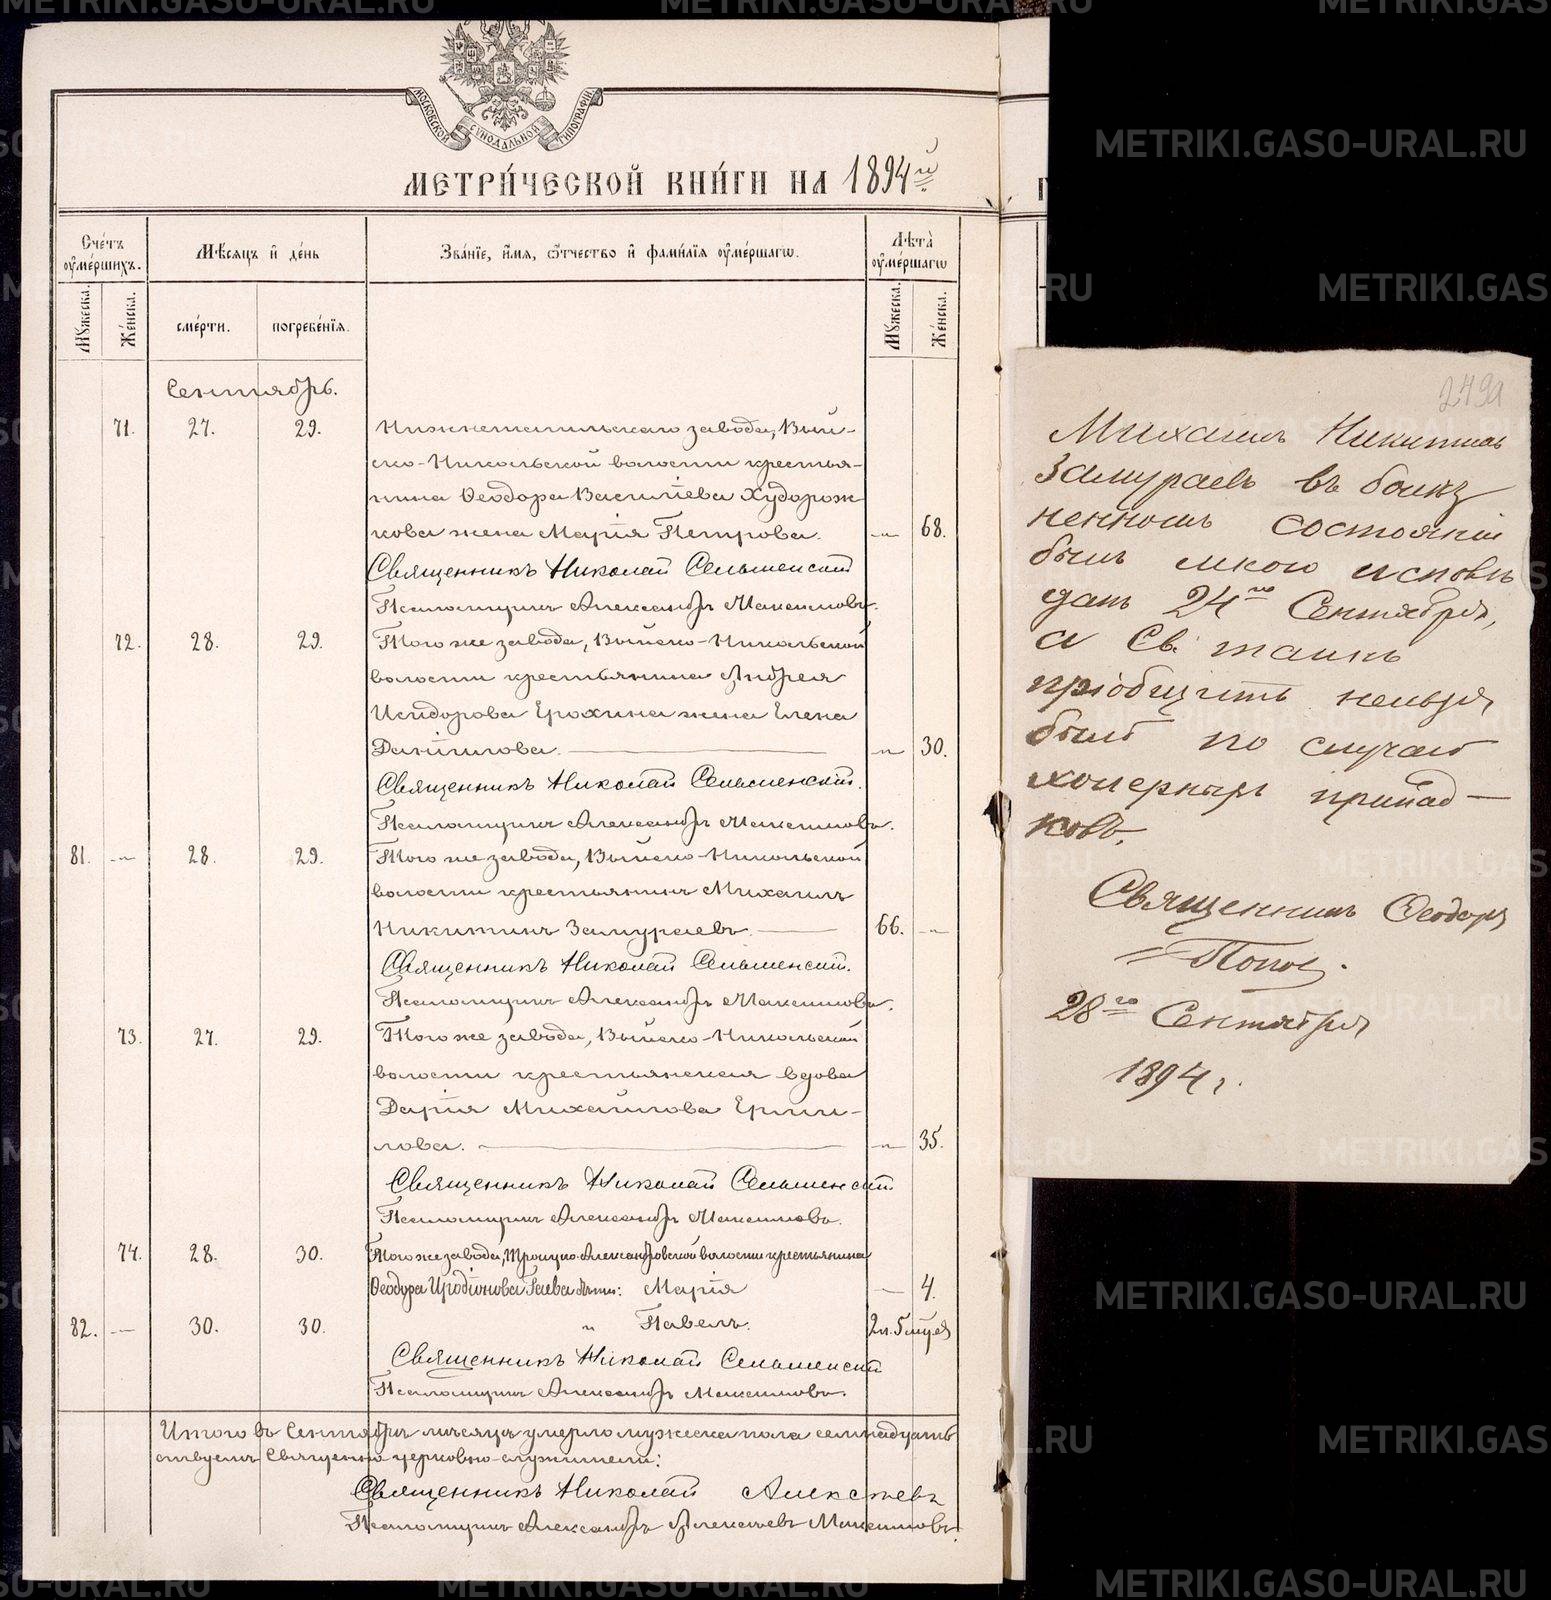 МОСКОВСКОЙ СѴНОДАЛЬНОЙ ТИПОГРАФІИ
МЕТРИ́ЧЕСКОЙ КНИ́ГИ НА 1894й
Сче́тъ ᲂу҆ме́ршихъ.
Мѣ́сяцъ и҆ де́нь
Зва́нїе, и҆́мя, ѻ҆́тчество и҆ фами́лїя ᲂу҆ме́ршагѡ.
Лѣта̀ ᲂу҆ме́ршагѡ
Мꙋ́жеска.
Же́нска.
сме́рти.
погребе́нїя.
Мꙋ́жеска.
Же́нска.
Сентябрь.
71. 27. 29. Нижнетагильскаго завода, Вый-
ско-Никольской волости крестья-
нина Ѳеодора Василіева Худорож
кова жена Марія Петрова. -"- 68.
Священникъ Николай Сельменскій
Псаломщикъ Александръ Максимовъ.
72. 28. 29. Того же завода, Выйско-Никольской
волости крестьянина Андрея
Исидорова Ерохина жена Елена
Даніилова. -"- 30.
Священникъ Николай Сельменскій.
Псаломщикъ Александръ Максимовъ.
81. -"- 28. 29. Того же завода, Выйско-Никольской
волости крестьянинъ Михаилъ
Никитинъ Замураевъ. 66. -"-
Священникъ Николай Сельменскій.
Псаломщикъ Александръ Максимовъ.
73. 27. 29. Того же завода, Выйско-Никольской
волости крестьянская вдова
Дарія Михайлова Ерми-
лова. -"- 35.
Священникъ Николай Сельменскій
Псаломщикъ Александръ Максимовъ.
74. 28. 30. Того же завода, Троицко-Александровской волости крестьянина
Ѳеодора Иродіонова Гаева дѣти: Марія — 4.
82. — 30. 30. " Павелъ. 2 л. 5 мцев
Священникъ Николай Сельменскій
Псаломщикъ Александръ Максимовъ.
Итого въ Сентябрѣ мѣсяцѣ умерло мужеска пола семнадцать
Священно церковно-служители:
Священникъ Николай Алексѣевъ
Псаломщикъ Александръ Алексѣевъ Максимовъ.
249а
Михаилъ Никитинъ
Замураевъ въ болѣз
ненномъ состояніи
былъ мною исповѣ
данъ 24го Сентября,
а Св. таинъ
пріобщить нельзя
было по случаю
холерныхъ припад-
ковъ.
Священникъ Ѳеодоръ
Попов.
28го Сентября
1894 г.
METRIKI.GASO-URAL.RU